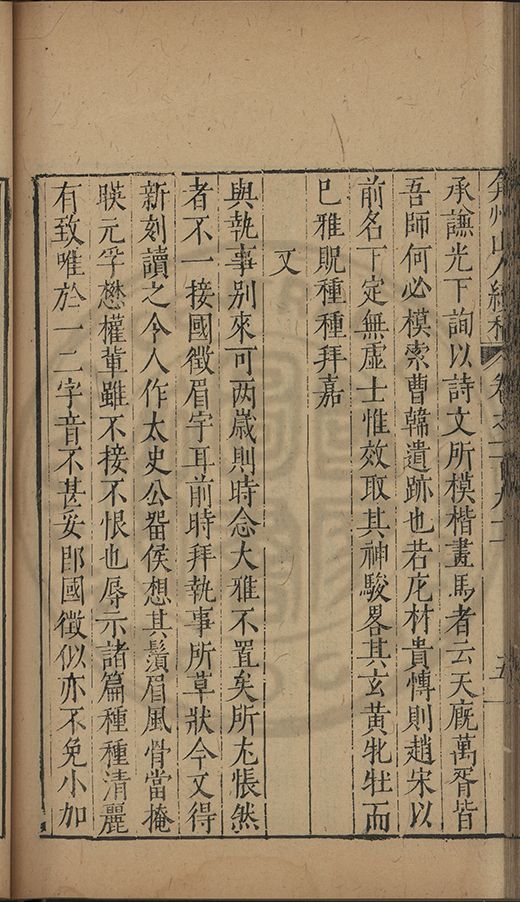 弇州山人續稿 卷之一百九二 五
承謙光下詢以詩文所模楷畫馬者云天廐萬胥皆
吾師何必模索曹韓遺跡也若庀材貴慱則趙宋以
前名下定無虛士惟效取其神駿畧其玄黃牝牡而
已雅貺種種拜嘉
又
與執事别來可两歲則時念大雅不置矣所尤悵然
者不一接國徵眉宇耳前時拜執事所草狀今又得
新刻讀之令人作太史公畱侯想其鬚眉風骨當掩
暎元孚懋權軰雖不接不恨也辱示諸篇種種清麗
有致唯於一二字音不甚妥卽國徵似亦不免小加